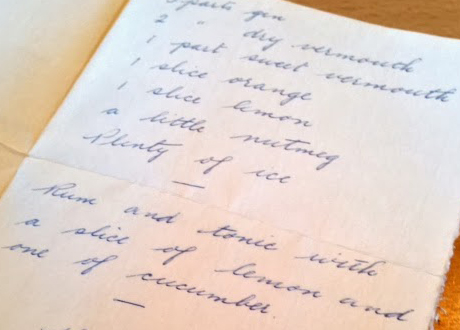 parts gin
2 " dry vermouth
1 part sweet vermouth
1 slice orange
1 slice lemon
a little nutmeg
Plenty of ice
—
Rum and tonic with
a slice of lemon and
one of cucumber.
—